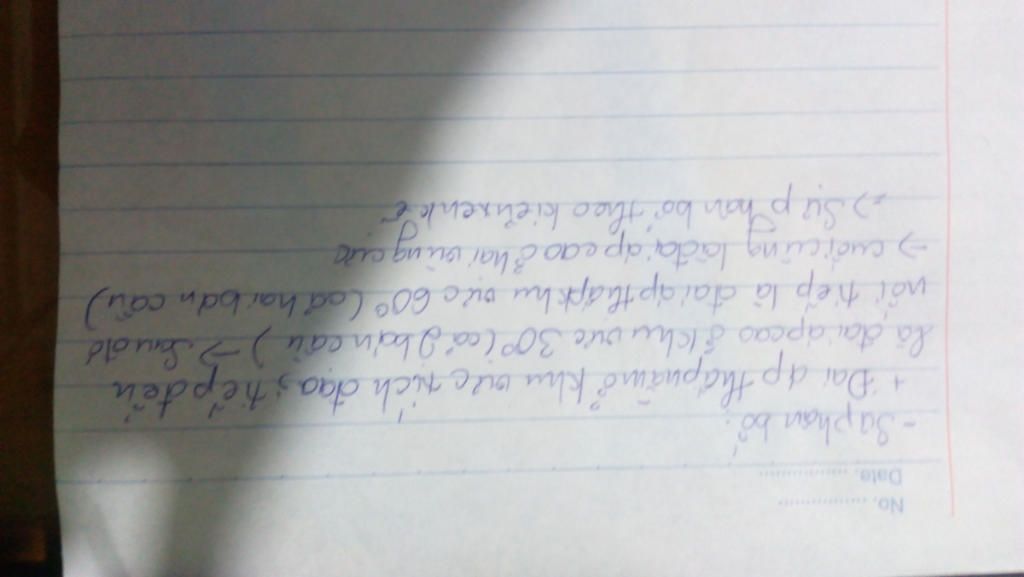 No. ................
Date ................
- Sự phân bố:
+ Đai áp thấp nằm ở khu vực xích đạo, tiếp đến
là đai áp cao ở khu vực 30° (cả 2 bán cầu) → Sau đó
nối tiếp là đai áp thấp khu vực 60° (cả hai bán cầu)
→ cuối cùng là đai áp cao ở hai vùng cực
=> Sự phân bố theo kiểu xen kẽ